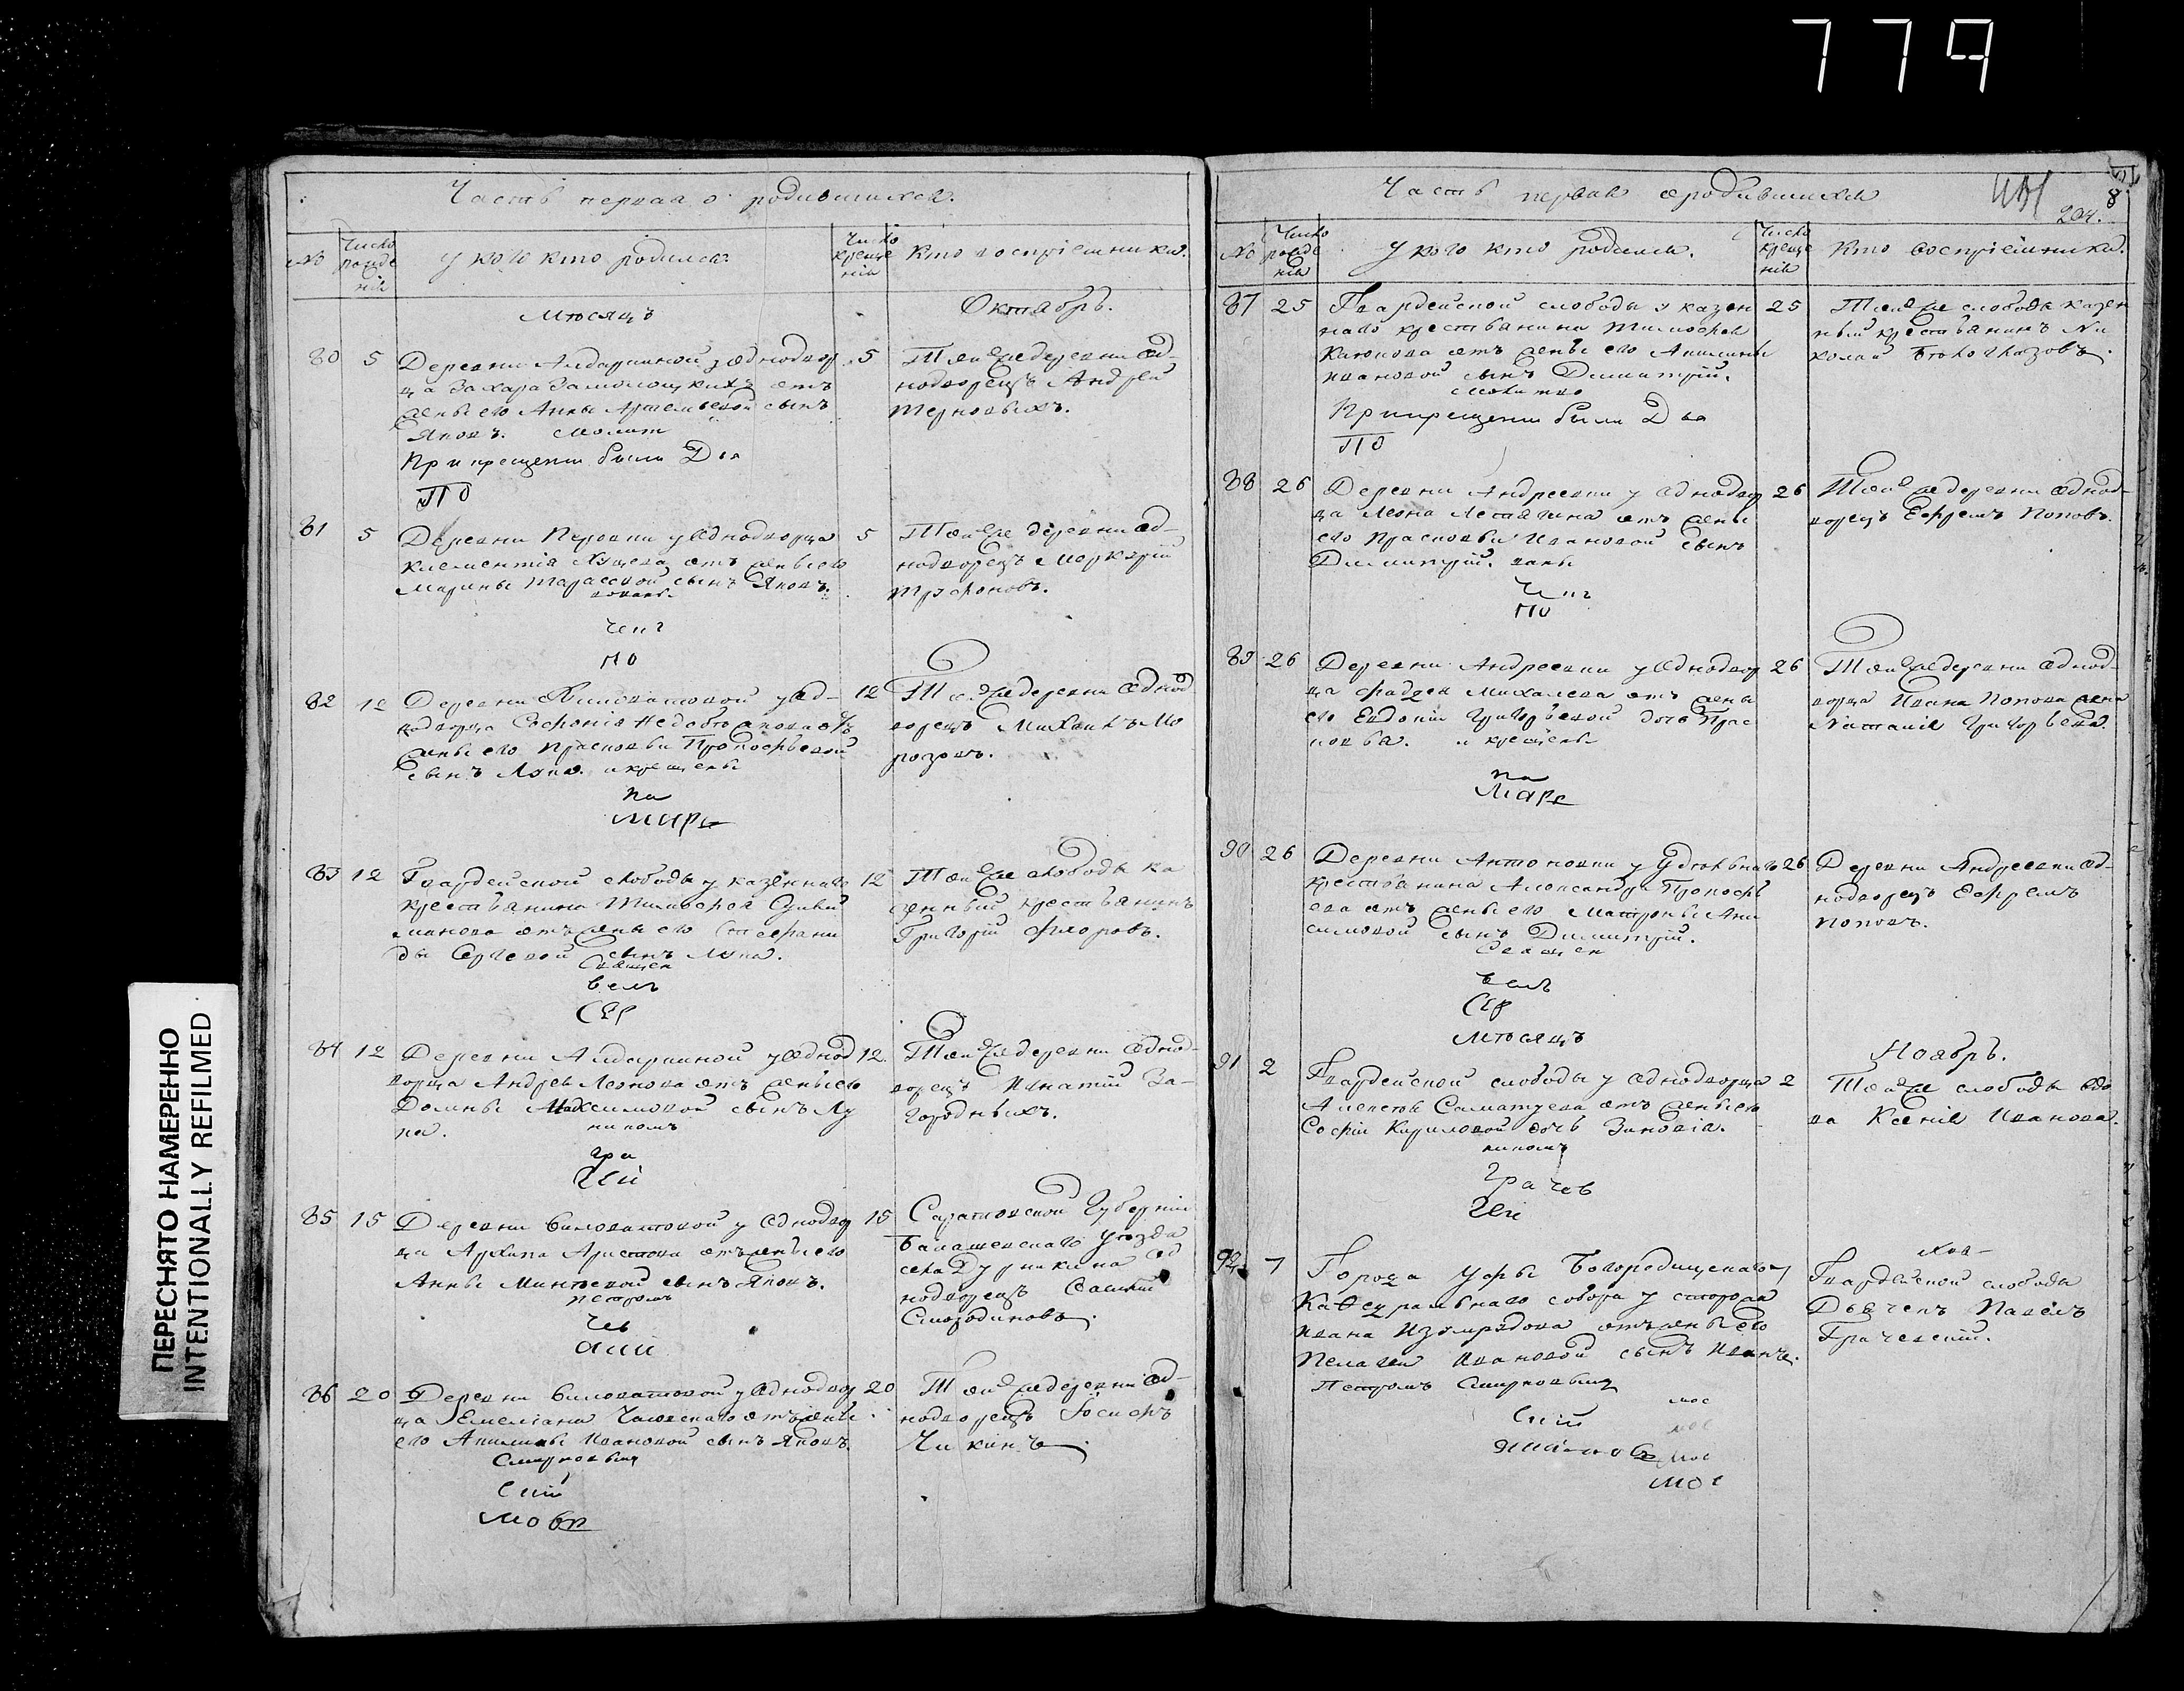 779
ПЕРЕСНЯТО НАМЕРЕННО
INTENTIONALLY REFILMED
Часть первая о родившихся.
№
Число рожде нія
У кого кто родился.
Число креще нія
Кто воспріемники.
Мѣсяцъ
Октябрь.
80 5
Деревни Алдаркиной у однодвор
ца Захара Замолоцкихъ отъ
жены его Анны Артемьевой сынъ
Яковъ. молит
При крещеніи были Два
ПО
5
Той же деревни од-
нодворецъ Андрей
Терновыхъ.
81 5
Деревни Перовки у однодворца
Климентія отъ жены его
Марины Тарасовой сынъ Яковъ.
ПО
5
Той же деревни од-
нодворецъ Меркурій
Трифоновъ.
82 12
Деревни Виловатовой у од-
нодворца Софонія отъ
жены его Прасковьи Прокофьевой
сынъ Лука. и крещены
на
маре
12
Той же деревни однод
ворецъ Михаилъ Мо
розовъ.
83 12
Гвардейской слободы у казеннаго
крестьянина Тимофея
отъ жены его Стефани
ды Сергѣевой сынъ Лука.
Священ
вель
СЕР
12
Той же слободы ка
зенный крестьянинъ
Григорій Флоровъ.
84 12
Деревни Алдаркиной у однод
ворца Андрея Леонова отъ жены его
Домны Максимовой сынъ Лу
ка. никомъ
гра
чей
12.
Той же деревни однод-
ворецъ Игнатій За-
городныхъ.
85 15
Деревни Виловатовой у однодвор
ца Архипа Аристова отъ жены его
Анны Минѣевой сынъ Яковъ.
Петромъ
15
Саратовской Губерніи
Балашевскаго уѣзда
села Дурникина од
нодворецъ
Смородиновъ.
86 20
Деревни Виловатовой у однодвор
ца Емеліана отъ жены
его Акилины Ивановой сынъ Яковъ
Смирновым
20
Той же деревни од-
нодворецъ Іосифъ
Чикинъ.
Часть первая о родившихся
204.
8
№
Число рожде нія
У кого кто родился.
Число креще нія
Кто воспріемники.
87 25
Гвардейской слободы у казен
наго крестьянина Тимофея
отъ жены его Акилины
Ивановой сынъ Димитрій.
молитво
При крещеніи были Два
ПО
25
Той же слободы казен
ный крестьянинъ Ни
колай Бѣлоглазовъ.
88 26
Деревни Андреевки у однодвор
ца Леона отъ жены
его Прасковьи Ивановой сынъ
Димитрій. ваны
ПО
26
Той же деревни однод-
ворецъ Ефремъ Поповъ.
89 26
Деревни Андреевки у однодвор
ца Фаддея Михалева отъ жены
его Евдокіи Григорьевой дочь Прас
ковья. и крещены
на
Маре
26
Той же деревни однод-
ворца Ивана Попова жена
Наталія Григорьева.
90 26
Деревни Антоновки у Удѣльнаго
крестьянина Александра Прокофь
ева отъ жены его Матроны Ани
симовой сынъ Димитрій.
Священ
вель
СЕР
26
Деревни Андреевки од-
нодворецъ Ефремъ
Поповъ.
Мѣсяцъ
Ноябрь.
91 2
Гвардейской слободы у однодворца
Алексѣя отъ жены его
Софіи Кириловой дочь Зиновія.
никомъ
Грачев
2
Той же слободы вдо
ва Ксенія Иванова.
92. 7
Города Уфы Богородицкаго
Каѳедральнаго собора у сторожа
Ивана Изумрудова отъ жены его
Пелагеи Ивановой сынъ Иванъ.
Петромъ Смирновым
мос
мос
мос
мос
7
Гвардейской слободы
Дьячекъ Павелъ
Грачевскій.